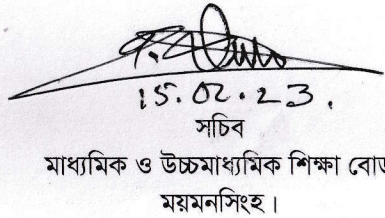 15.02.23.
সচিব
মাধ্যমিক ও উচ্চমাধ্যমিক শিক্ষা বোর্ড
ময়মনসিংহ।